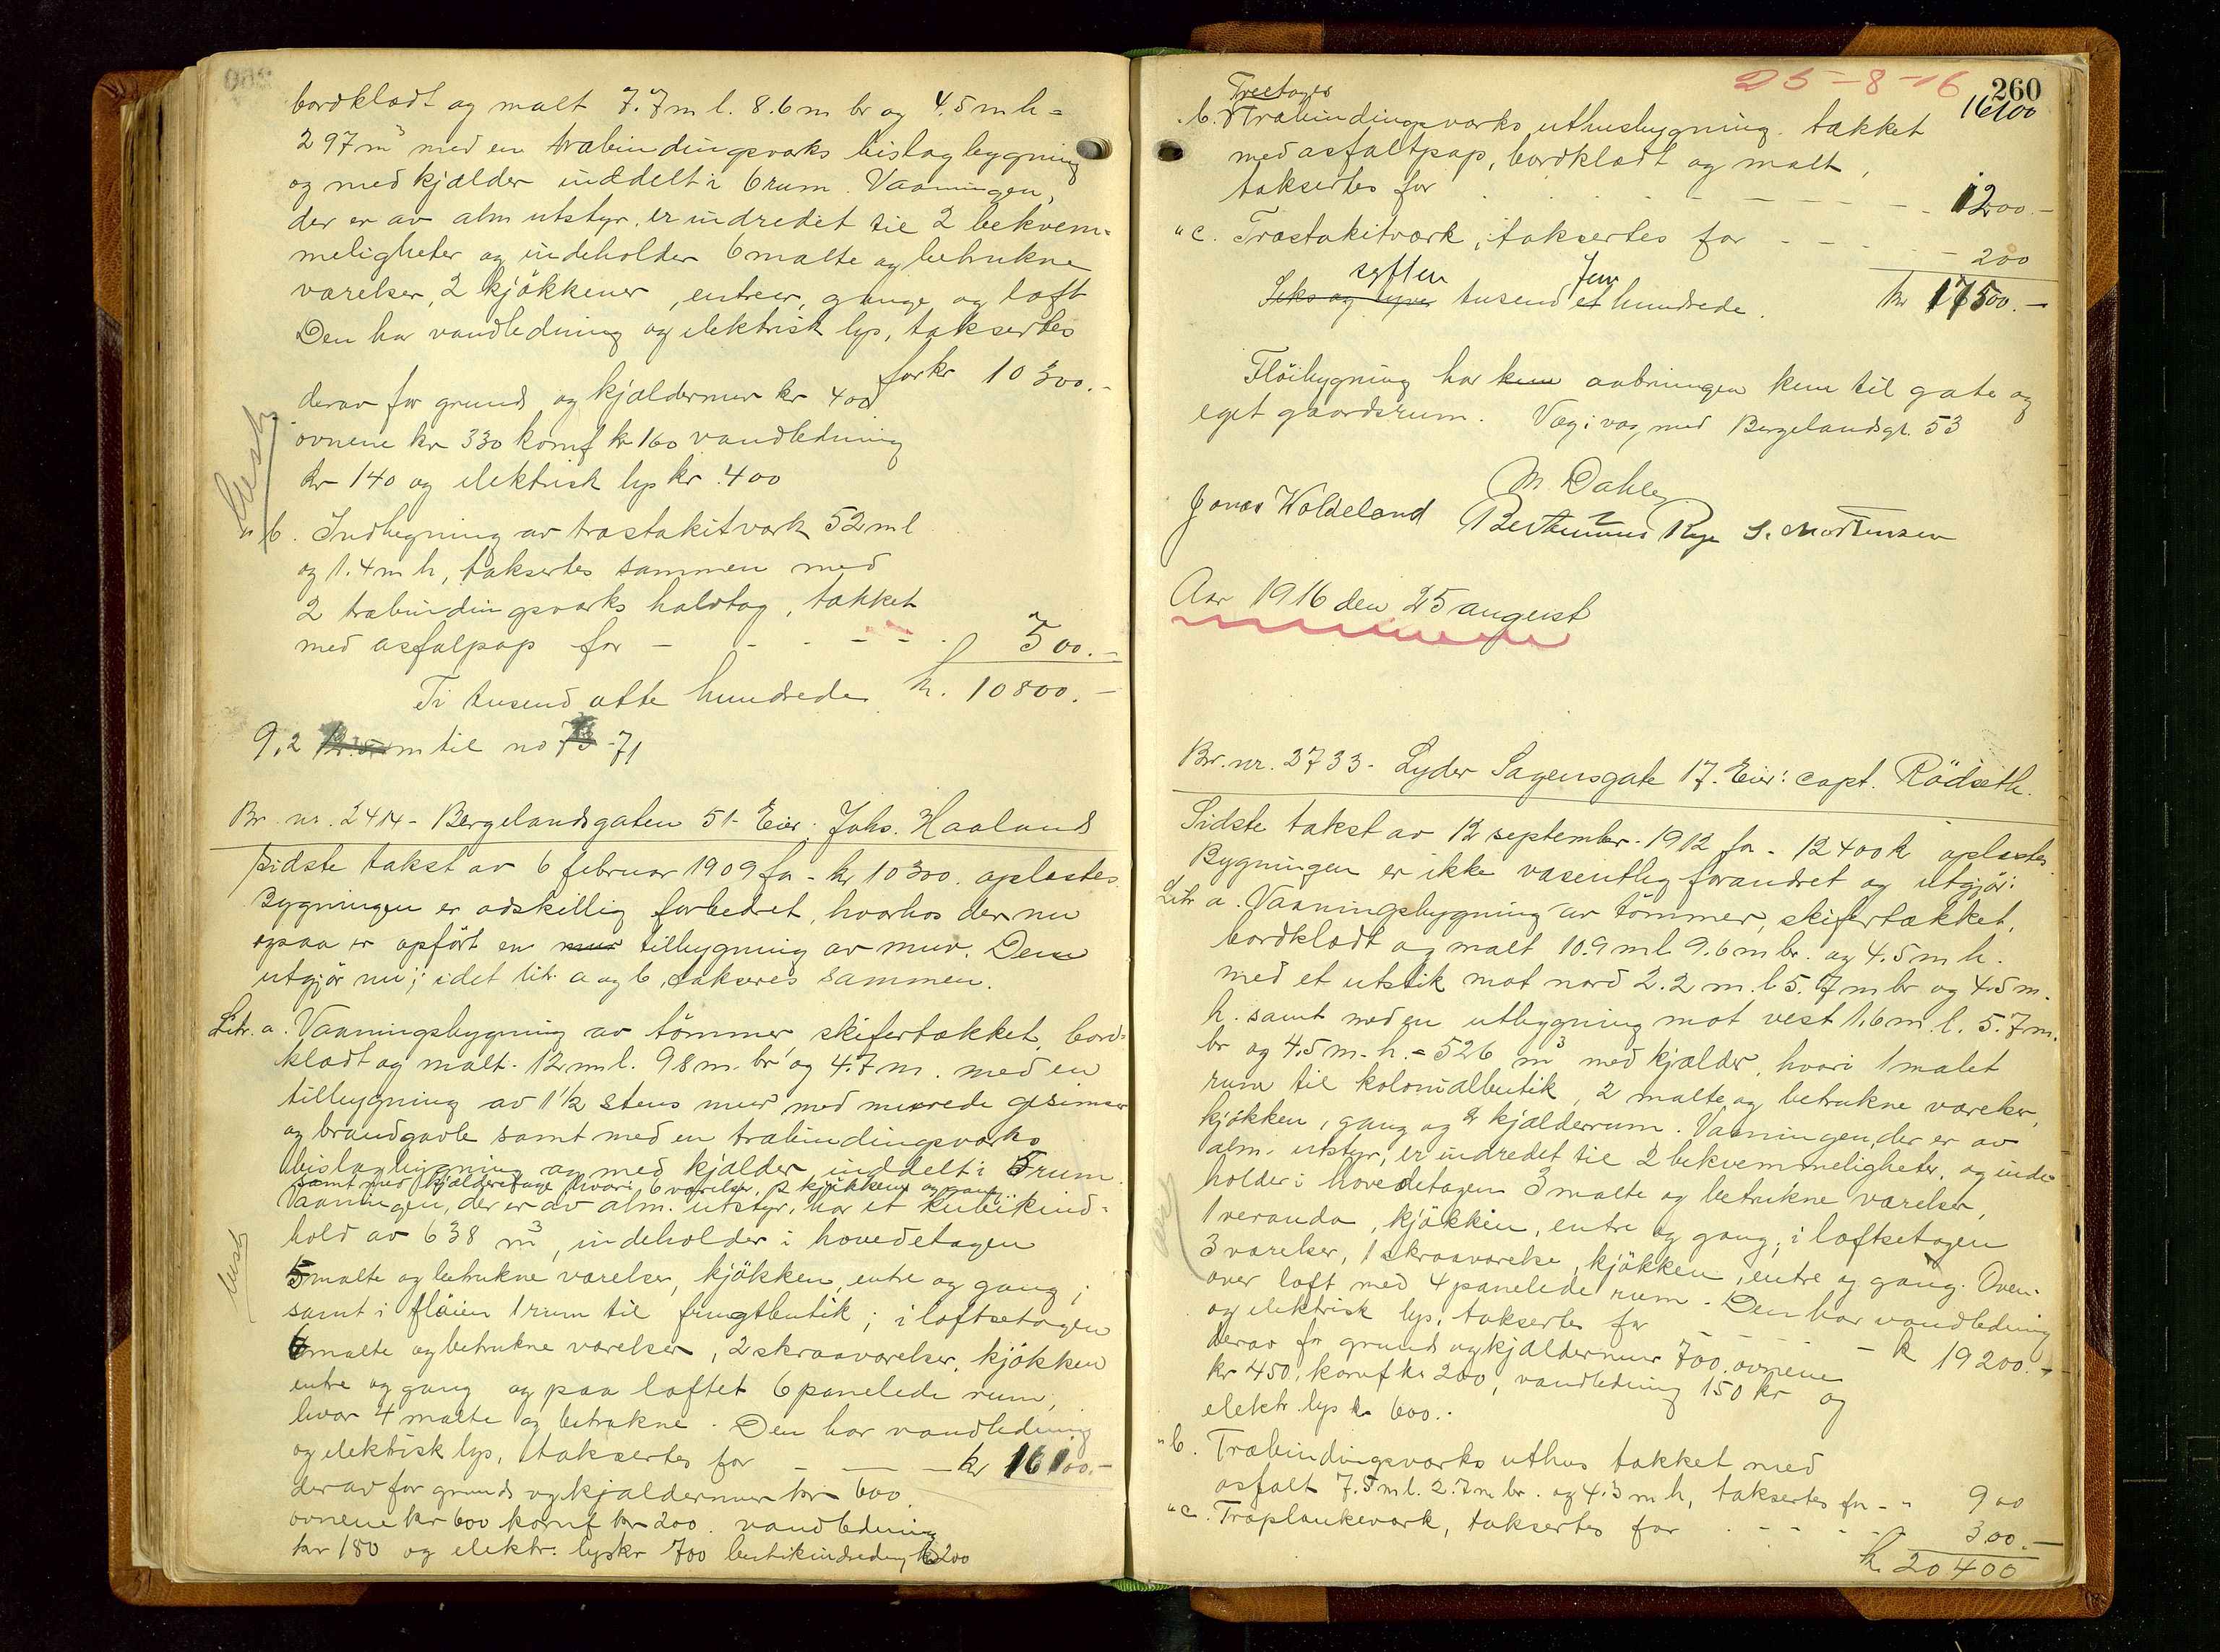 bordklædt og malt 7.7 m l. 8.6 m br og 4.5 m h =
297 m³ med en træbindingsværks bislagbygning
og med kjælder inddelt i 6 rum. Vaaningen,
der er av alm utstyr, er indredet til 2 bekvem-
meligheter og indeholder 6 malte og betrukne
værelser, 2 kjökkener, entreer, gange og loft
Den har vandledning og elektrisk lys, taksertes
for kr 10300.-
derav for grund og kjældermur kr 400
ovnene kr 330 komf kr 160 vandledning
kr 140 og elektrisk lys kr 400
" b. Indhegning av træstakitværk 52 m l
og 1.4 m h, taksertes sammen med
2 træbindingsværks halvtag, tækket
med asfalpap for - - - - - 500.-
Ti tusend otte hundrede kr. 10800.-
9,2 m til no 73 - 71
Br. nr. 2414 - Bergelandsgaten 51 - Eier: Johs. Haaland
Sidste takst av 6 februar 1909 for - kr 10300. oplæstes.
Bygningen er adskillig forbedret, hvorhos der nu
ogsaa er opfört en mur tilbygning av mur. Den
utgjör nu; idet litr a og b, takseres sammen.
Litr. a. Vaaningsbygning av tömmer, skifertækket, bord-
klædt og malt. 12 m l. 9.8 m. br og 4.7 m. med en
tilbygning av 1½ stens mur med murede gesimser
og brandgavle samt med en træbindingsværks
bislagbygning og med kjælder inddelt i 5 rum.
samt med kjælderetage hvori 6 værelser, 2 kjökkener og gang
Vaaningen, der er av alm. utstyr, har et kubikind-
hold av 638 m³, indeholder i hovedetagen
5 malte og betrukne værelser, kjökken, entre og gang;
samt i flöien 1 rum til frugtbutik; i loftsetagen
6 malte og betrukne værelser, 2 skraaværelser, kjökken
entre og gang og paa loftet 6 panelede rum,
hvor 4 malte og betrukne. Den har vandledning
og elektrisk lys, taksertes for - - - kr 16100.-
derav for grund og kjældermur kr 600.
ovnene kr 600 komf kr 200. vandledning
kr 180 og elektr. lys kr 700 butikindredning kr 200
25-8-16 260
16100
Treetages
" b. Træbindingsværks uthusbygning. tækket
med asfaltpap, bordklædt og malt,
taksertes for - - - - - - 1200.-
" c. Træstakitværk, taksertes for - - - - 200
sytten fem
Seks og tyver tusend et hundrede. kr 17500.-
Flöibygning har kun aabninger kun til gate og
eget gaardsrum. Væg i væg med Bergelandsgt. 53
M. Dahle
Jonas Woldeland Berthinius Rege S. Mortensen
Aar 1916 den 25 august
Br. nr. 2733 - Lyder Sagensgate 17. Eier: capt. Rödseth.
Sidste takst av 12 september 1912 for - 12400 kr oplæstes.
Bygningen er ikke væsentlig forandret og utgjör:
Litr a. Vaaningsbygning av tömmer, skifertækket,
bordklædt og malt 10.9 m l. 9.6 m br. og 4.5 m h.
med et utstik mot nord 2.2 m. l 5.7 m br og 4.5 m.
h. samt med en utbygning mot vest 1.6 m. l. 5.7 m.
br og 4.5 m. h. = 526 m³ med kjælder, hvori 1 malet
rum til kolonialbutik, 2 malte og betrukne værelser,
kjökken, gang og 2 kjælderrum. Vaaningen, der er av
alm. utstyr, er indredet til 2 bekvemmeligheter, og inde-
holder i hovedetagen 3 malte og betrukne værelser,
1 veranda, kjökken, entre og gang; i loftsetagen
3 værelser, 1 skraaværelse, kjökken, entre og gang. Oven-
over loft med 4 panelede rum. Den har vandledning
og elektrisk lys, taksertes for - - - - - kr 19200.-
derav for grund og kjældermur 700. ovnene
kr 450, komf kr 200, vandledning 150 kr og
elektr. lys kr 600.-
" b. Træbindingsværks uthus tækket med
asfalt 7.5 m l. 2.7 m br. og 4.3 m h, taksertes for - " 900
" c. Træplankeværk, taksertes for - - - - 300.-
kr. 20400